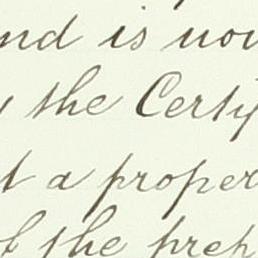 and is now
the Certy
t a proper
of the prep